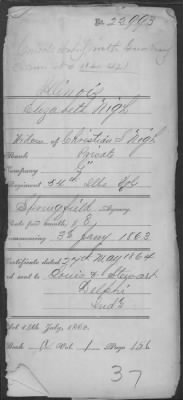 No. 22,993
Illinois
Elizabeth Wigh
Widow of Christian S Wigh
Rank Private
Company "G"
Regiment 34th Ills Vols
Springfield Agency
Rate per month $ 8
commencing 3d Jany 1863
Certificate dated 27th May 1864
and sent to Louis & Stewart
Delphi
Ind
Act 14th July, 1862.
Book A Vol. 1 Page 156
37